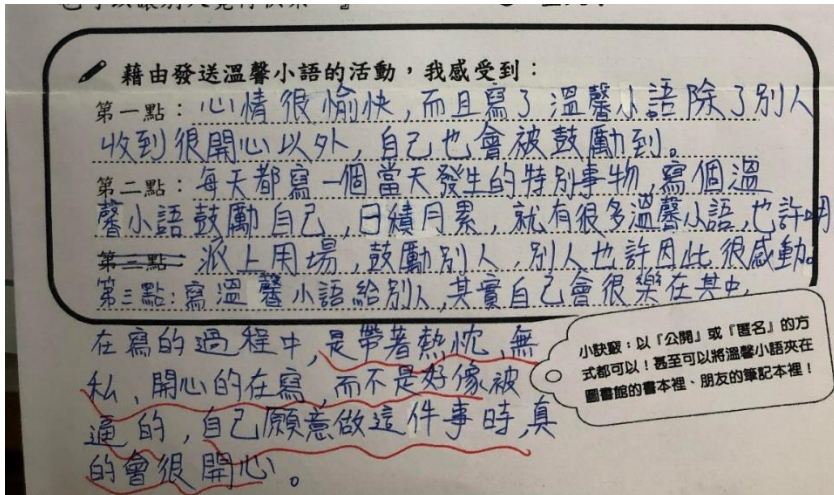 藉由發送溫馨小語的活動，我感受到：
第一點：心情很愉快，而且寫了溫馨小語除了別人
收到很開心以外，自己也會被鼓勵到。
第二點：每天都寫一個當天發生的特別事物，寫個溫
馨小語鼓勵自己，日積月累，就有很多溫馨小語，也許明
第三點 派上用場，鼓勵別人，別人也許因此很感動。
第三點：寫溫馨小語給別人，其實自己會很樂在其中，
在寫的過程中，是帶著熱忱、無
私、開心的在寫，而不是好像被
逼的，自己願意做這件事時，真
的會很開心。
小訣竅：以「公開」或「匿名」的方
式都可以！甚至可以將溫馨小語夾在
圖書館的書本裡、朋友的筆記本裡！